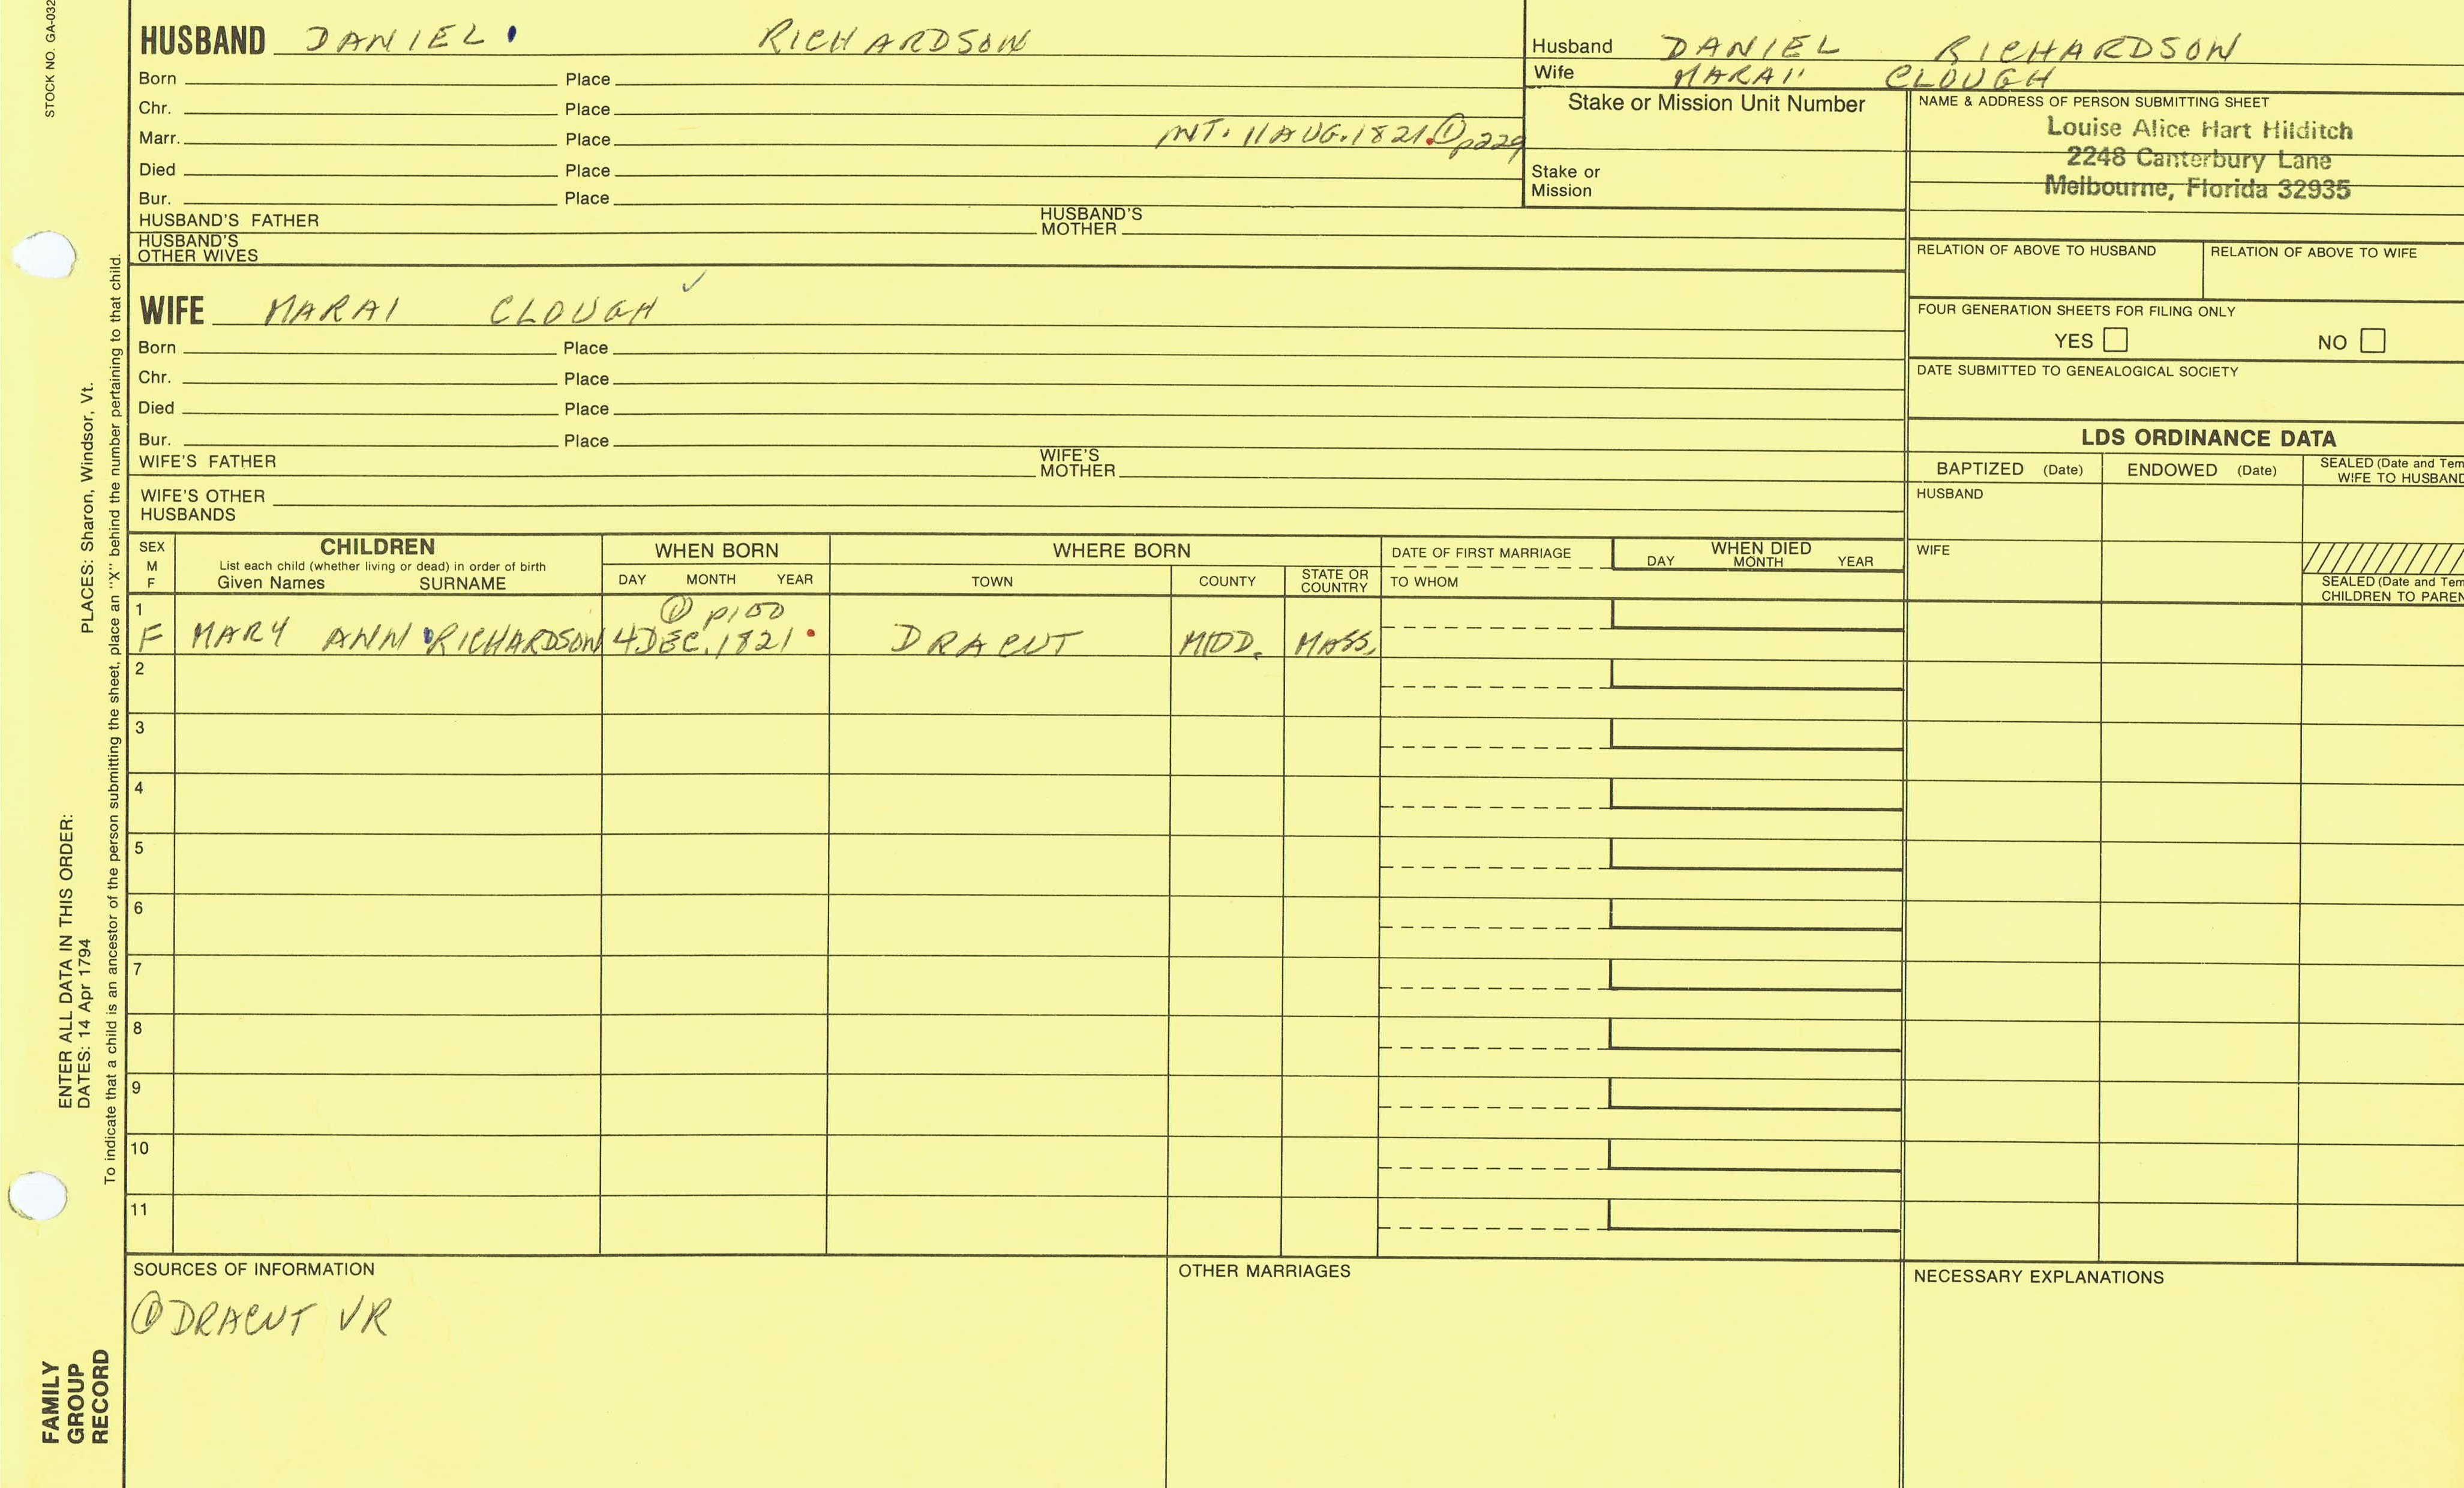 STOCK NO. GA-032
HUSBAND DANIEL RICHARDSON
Born Place
Chr. Place
Marr. Place INT. 11 AUG. 1821. ① p229
Died Place
Bur. Place
HUSBAND'S FATHER HUSBAND'S MOTHER
HUSBAND'S OTHER WIVES
Husband DANIEL RICHARDSON
Wife MARAI CLOUGH
Stake or Mission Unit Number
Stake or
Mission
NAME & ADDRESS OF PERSON SUBMITTING SHEET
Louise Alice Hart Hilditch
2248 Canterbury Lane
Melbourne, Florida 32935
RELATION OF ABOVE TO HUSBAND RELATION OF ABOVE TO WIFE
FOUR GENERATION SHEETS FOR FILING ONLY
YES NO
DATE SUBMITTED TO GENEALOGICAL SOCIETY
WIFE MARAI CLOUGH ✓
Born Place
Chr. Place
Died Place
Bur. Place
WIFE'S FATHER WIFE'S MOTHER
WIFE'S OTHER
HUSBANDS
LDS ORDINANCE DATA
BAPTIZED (Date) ENDOWED (Date) SEALED (Date and Tem
WIFE TO HUSBAND
HUSBAND
WIFE
SEALED (Date and Tem
CHILDREN TO PAREN
SEX
M
F
CHILDREN
List each child (whether living or dead) in order of birth
Given Names SURNAME
WHEN BORN
DAY MONTH YEAR
WHERE BORN
TOWN COUNTY STATE OR COUNTRY
DATE OF FIRST MARRIAGE
TO WHOM
WHEN DIED
DAY MONTH YEAR
1 ① p150
F MARY ANN RICHARDSON 4 DEC. 1821 DRACUT MIDD. MASS.
2
3
4
5
6
7
8
9
10
11
SOURCES OF INFORMATION
① DRACUT VR
OTHER MARRIAGES
NECESSARY EXPLANATIONS
ENTER ALL DATA IN THIS ORDER:
DATES: 14 Apr 1794 PLACES: Sharon, Windsor, Vt.
To indicate that a child is an ancestor of the person submitting the sheet, place an "X" behind the number pertaining to that child.
FAMILY
GROUP
RECORD